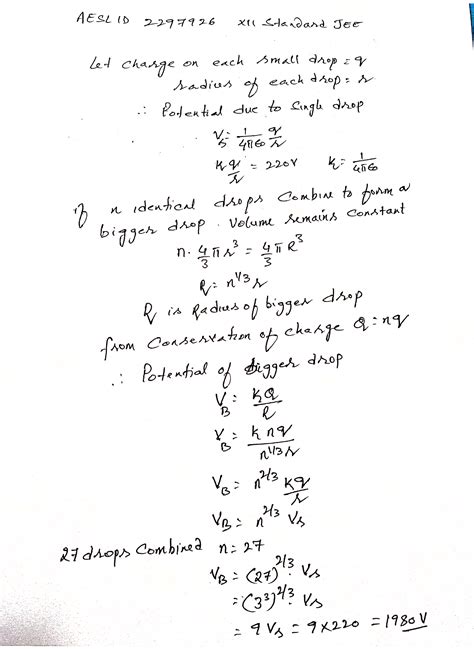 AESL ID 2297926 XII Standard JEE
Let charge on each small drop = q
radius of each drop = r
∴ Potential due to single drop
Vs = 1/4π∈0 q/r
kq/r = 220V k = 1/4π∈0
If n identical drops combine to form a
bigger drop. Volume remains constant
n. 4/3 πr³ = 4/3 π R³
R = n^1/3 r
R is Radius of bigger drop
from Conservation of charge Q = nq
∴ Potential of bigger drop
VB = kQ/R
VB = knq/n^1/3 r
VB = n^2/3 kq/r
VB = n^2/3 Vs
27 drops Combined n = 27
VB = (27)^2/3. Vs
= (3³)^2/3. Vs
= 9 Vs = 9 × 220 = 1980 V